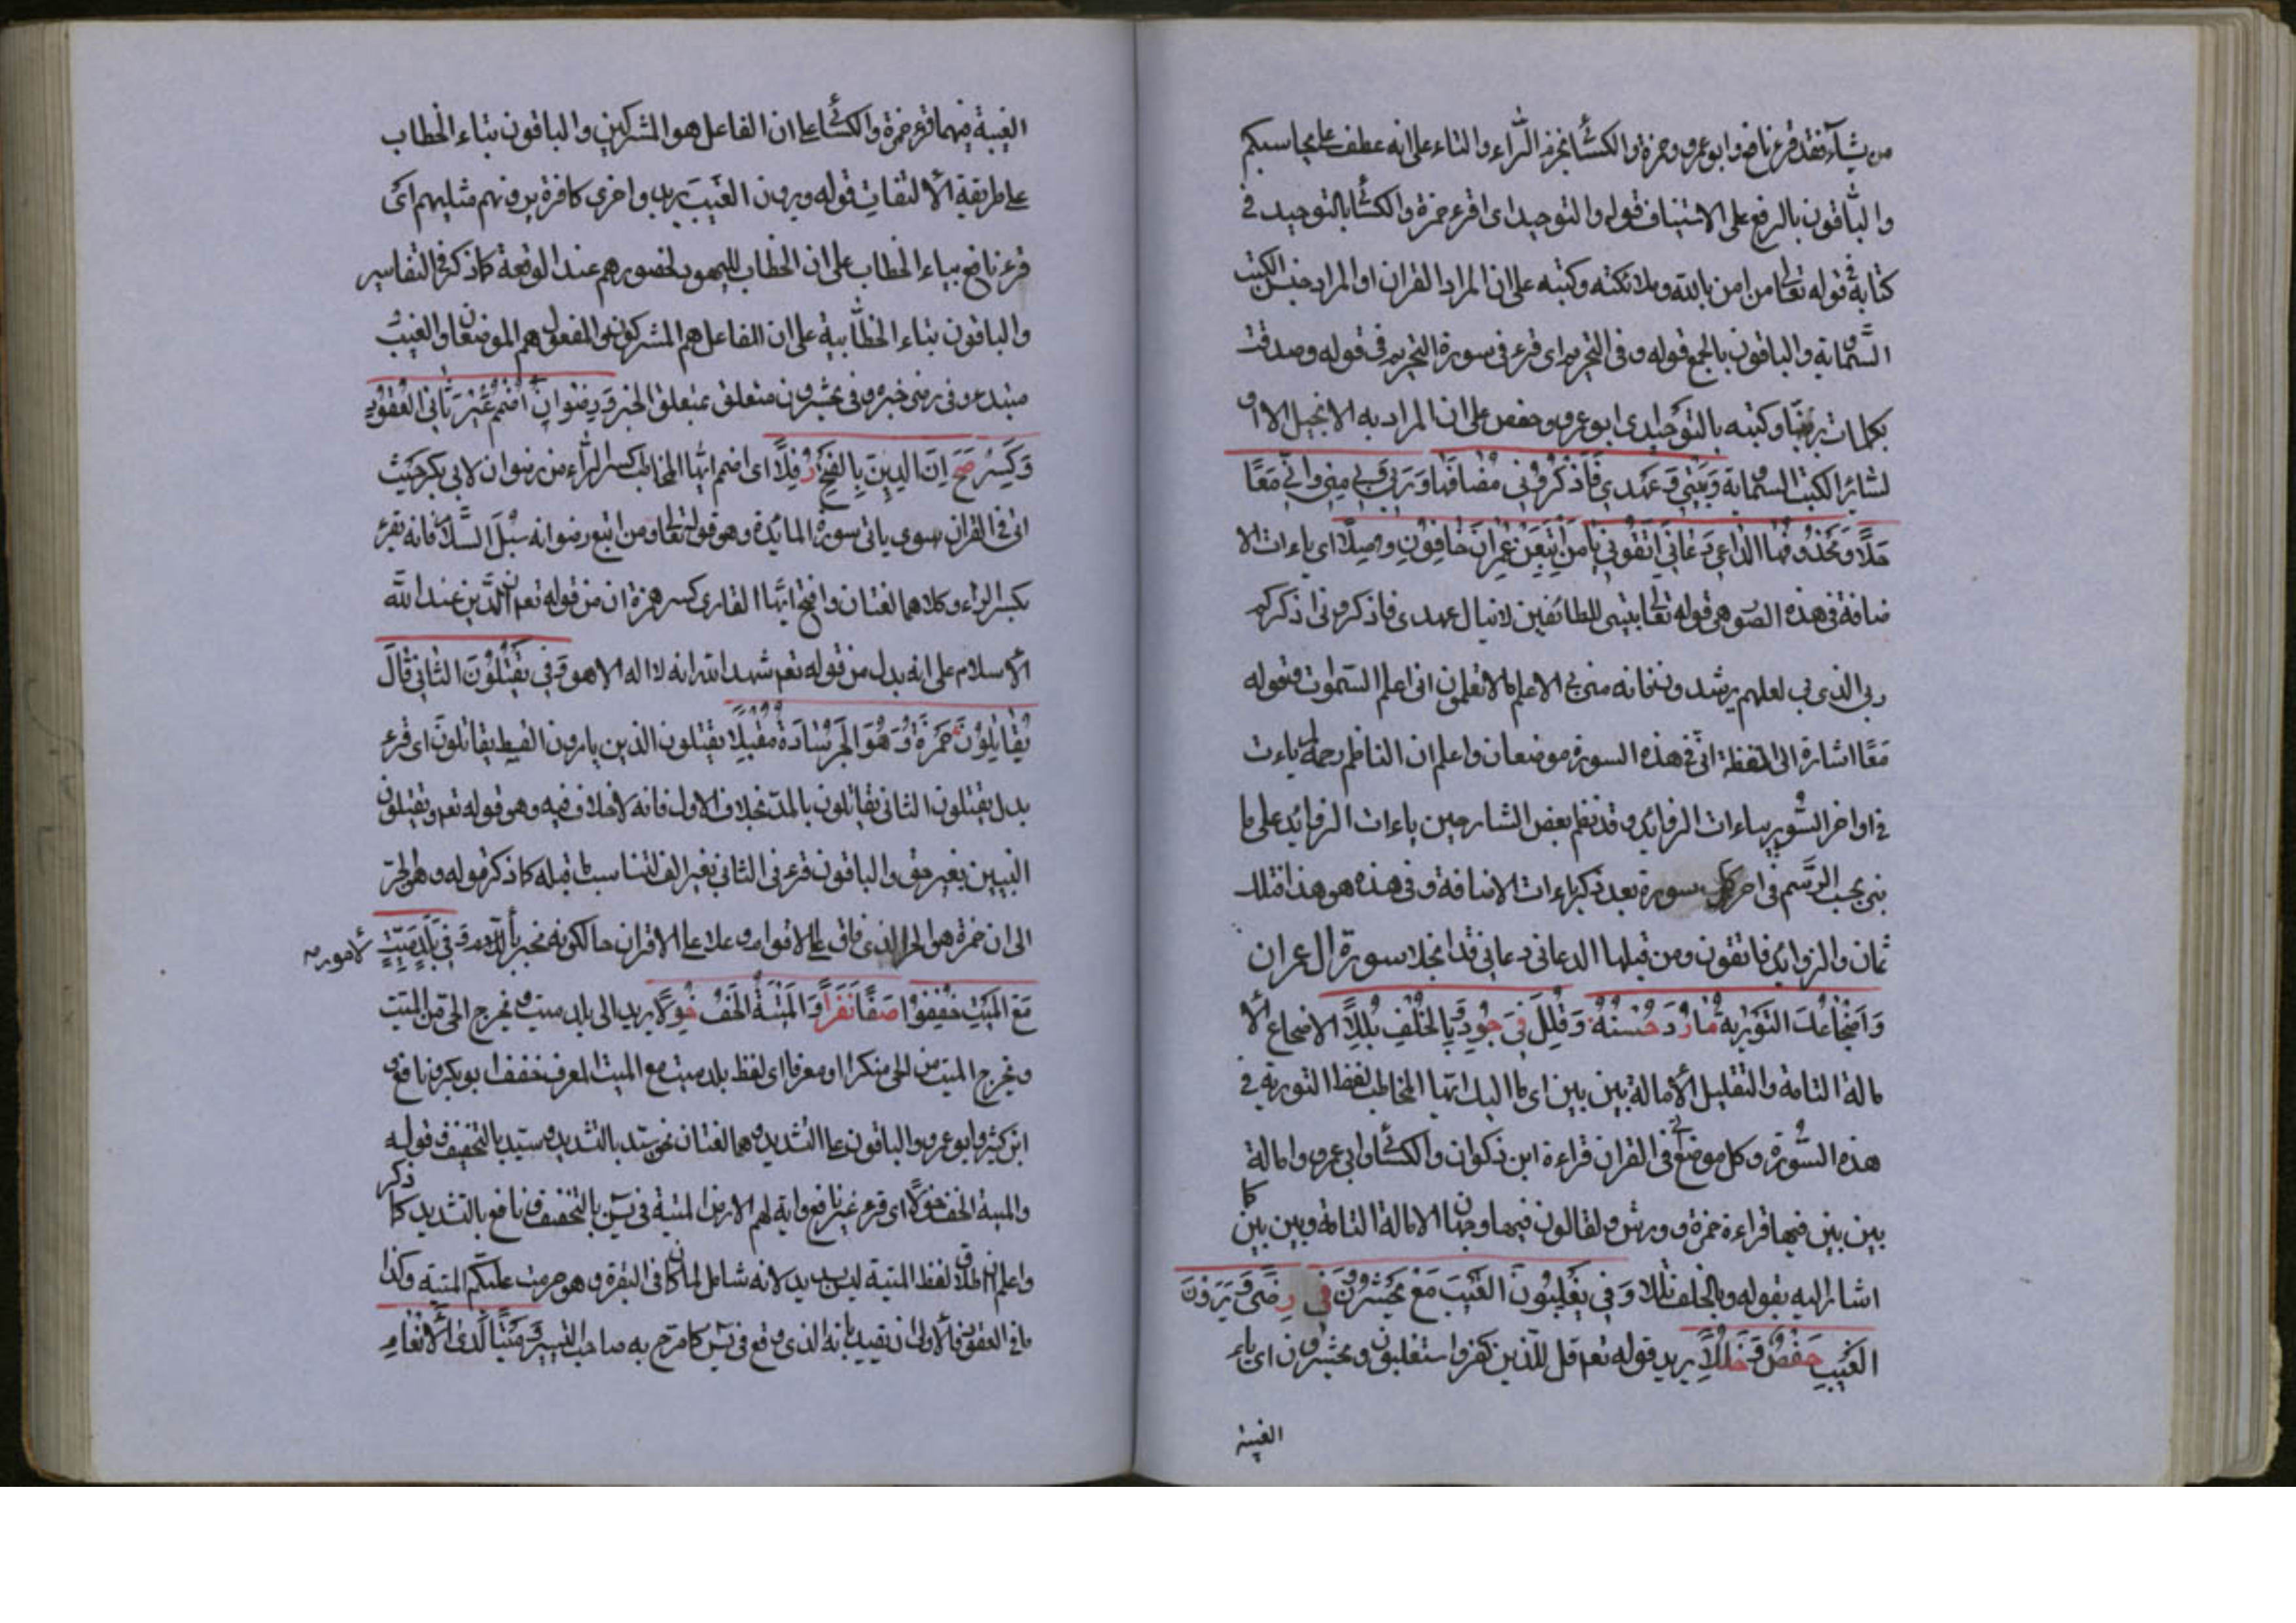 من يشآء فقد قرء نافع وابو عمرو وحمزة والكسائى بجزم الراء والتاء على انه عطف على يحاسبكم
والباقون بالرفع على الاستيناف قوله والتوحيد اى اقرء حمزة والكسائى بالتوحيد فى
كتابة فى قوله تعالى من امن بالله وملائكته وكتبه على ان المراد القران او المراد جنس الكتب
السماوية والباقون بالجمع قوله وفى التحريم اى قرء فى سورة التحريم فى قوله وصدقت
بكلمات ربها وكتبه بالتوحيد ابو عمرو وحفص على ان المراد به الانجيل
لسائر الكتب السماوية وَبَيْتِي وَعَهْدِي فَاذْكُرُونِي مُضَافُهَا وَرَبِّي وَبِي مِنِّي وَاِنِّي مَعًا
حَلَا وَمَحْذُوفُهَا الدَّاعِي دَعَانِي اتَّقُونِ يَا
ضافة فى هذه السورة هى قوله تعالى بيتى للطائفين لا ينال عهدى فاذكرونى اذكركم
ربى الذى بى لعلهم يرشدون فانه منى الا اعلم مالا تعلمون انى اعلم السموات فقوله
مَعًا اشارة الى لفظة انى فى هذه السورة موضعان واعلم ان الناظم رحمه ياءت
فى اواخر السور ياءات الزوائد وقد نظم بعض الشارحين ياءات الزوائد على ما
بنى بحسب الرسم فى اخر كل سورة بعد ذكر ياءات الاضافة وفى هذه هو هذا فتلك
ثمان والزوايد فاتقون ومن قبلها الداعى دعانى قد انجلا سورة ال عمران
وَاِضْجَاعُكَ التَّوْرٰيةَ مَا رُدَّ حُسْنُهُ وَقُلِّلَ فِي جَوْدٍ وَبِالْخُلْفِ بَلَّلَا الاضجاع الا
مالة التامة والتقليل الامالة بين بين اى امالتك ايها المخاطب لفظ التورية فى
هذه السورة وكل موضع فى القران قراءة ابن ذكوان والكسائى وابى عمرو وامالة
بين بين فيها قراءة حمزة وورش ولقالون فيها وجهان الامالة التامة وبين بين كما
اشار اليه بقوله وبالخلف بللا وَفِي يُغْلَبُونَ الْغَيْبُ مَعْ يُحْشَرُونَ فِي رِضًى وَيَرَوْنَ
الْغَيْبَ حَفْصٌ وَخَلَّلَا يريد قوله تعم قل للذين كفروا ستغلبون وتحشرون اى ياء
الغيبة
الغيبة فيهما قرء حمزة والكسائى على ان الفاعل هو المشركين والباقون بتاء الخطاب
على طريقة الالتفات قوله ويرون الغيب يريد واخرى كافرة يرونهم مثليهم اى
قرء نافع بتاء الخطاب على ان الخطاب لليهود لحضورهم عند الوقعة كما ذكر فى التفاسير
والباقون بتاء الخطابية على ان الفاعل هم المشركون والمفعول هم المؤمنون والغيب
مبتدء وفى رضى خبره وفى يحشرون متعلق بمتعلق الخبر وَرِضْوَانٌ اضْمُمْ غَيْرَ ثَانِي الْعُقُودِ
وَكَسْرُهُ صَحَّ اِنَّ الدِّينَ بِالْفَتْحِ رُفِّلَا اى اضمم ايها المخاطب كسر الراء من رضوان لابى بكر حيث
اتى فى القران سوى ثانى سورة المائدة وهو قوله تعالى من اتبع رضوانه سُبُلَ السَّلَام فانه يقرء
بكسر الراء وكلاهما لغتان وافتح ايها القارى كسر همزة ان من قوله تعم ان الدين عند الله
الاسلام على انه بدل من قوله تعم شهد الله انه لا اله الا هو وَفِي يَقْتُلُونَ الثَّانِ قَالَ
يُقَاتِلُونَ حَمْزَةُ وَهُوَ الْحَبْرُ سَادَ مُقَتَّلَا يقتلون الذين يامرون بالقسط يقاتلون اى قرء
بدل يقتلون الثانى يقاتلون بالمد بخلاف الاول فانه لا خلاف فيه وهو قوله تعم ويقتلون
النبيين بغير حق والباقون قرء فى الثانى بغير الف لتناسب ما قبله كما ذكر قوله وهو الحبر
الى ان حمزة هو الحبر الذى فاق على الاقوام وعلا على الاقران حالكونه مجربا للامور وَفِي بَلَدٍ مَيْتٍ
مَعَ الْمَيْتِ خَفَّفُوا صَفَا نَفَرًا وَالْمَيْتَةُ الْخِفُّ خُوِّلَا يريد الى بلد ميت ويخرج الحى من الميت
ويخرج الميت من الحى منكرا او معرفا اى لفظ بلد ميت مع الميت المعرف خففه ابو بكر ونافع
ابن كثير وابو عمرو والباقون على التشديد وهما لغتان نحو سيد بالتشديد وسيد بالتخفيف قوله
والميتة الخف خولا اى قرء غير نافع واية لهم الارض الميتة فى يس بالتخفيف ونافع بالتشديد كما ذكر
واعلم ان اطلاق لفظ الميتة ليس بسديد لانه شامل لما كان فى البقرة وهو حرمت عليكم الميتة وكذا
ما فى العقود فالاولى ان يقيد بانه الذى وقع فى يس كما صرح به صاحب التيسير وَمَيْتًا لَدَى الْاَنْعَامِ